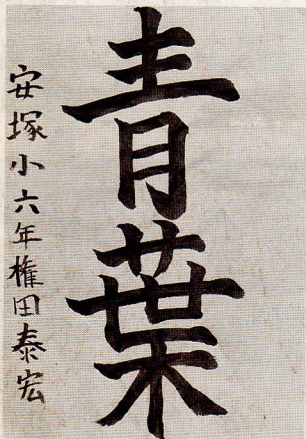 青葉
安塚小六年権田泰宏